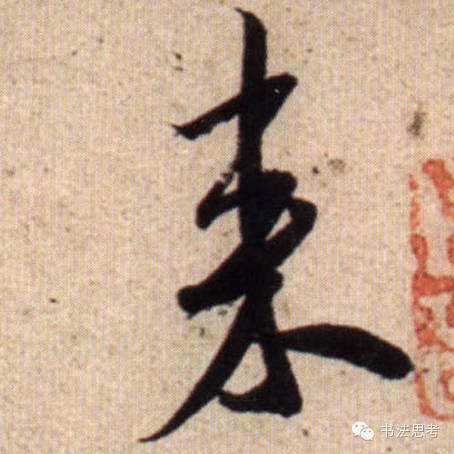 来
书法思考